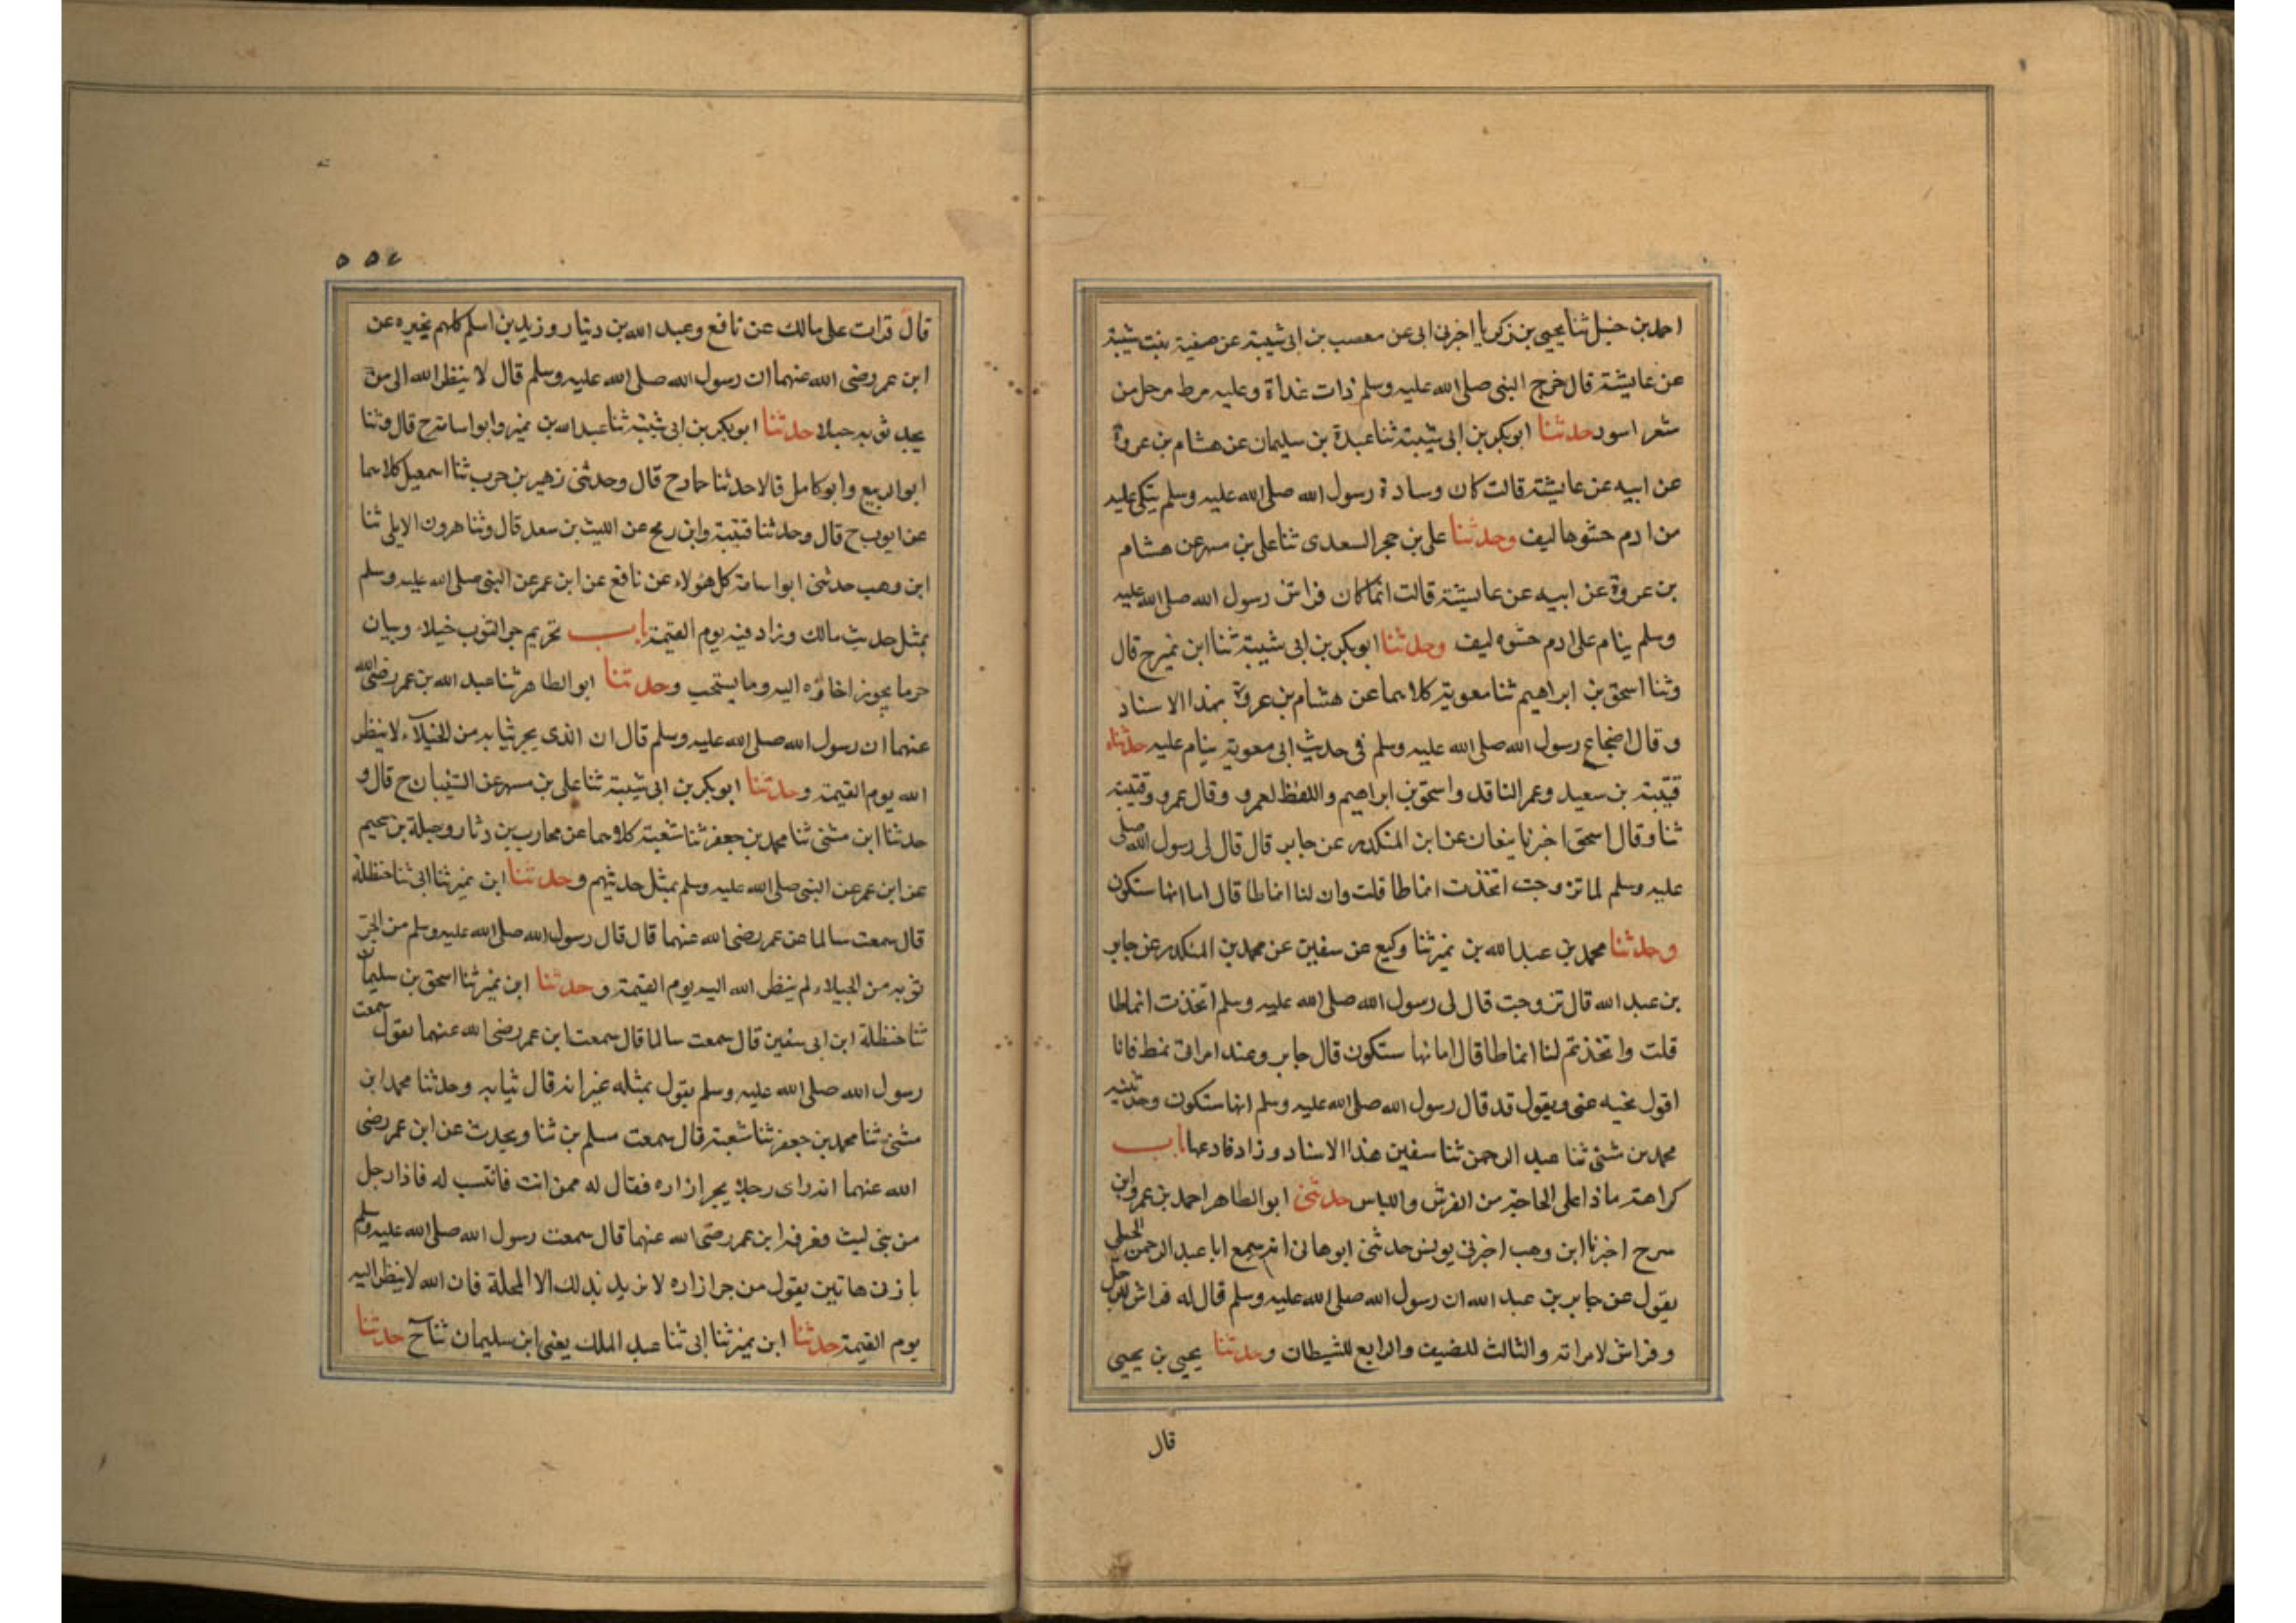 احمد بن حنبل ثنا يحيى بن زكريا اخبرنى ابى عن مصعب بن ابى شيبة عن صفية بنت شيبة
عن عايشة قال خرج النبى صلى الله عليه وسلم ذات غداة وعليه مرط مرحل من
شعر اسود حدثنا ابوبكر بن ابى شيبة ثنا عبدة بن سليمان عن هشام بن عروة
عن ابيه عن عايشة قالت كان وسادة رسول الله صلى الله عليه وسلم يتكى عليه
من ادم حشوها ليف وحدثنا على بن حجر السعدى ثنا على بن مسهر عن هشام
بن عروة عن ابيه عن عايشة قالت انما كان فراش رسول الله صلى الله عليه
وسلم ينام على ادم حشوه ليف وحدثنا ابوبكر بن ابى شيبة ثنا ابن نمير ح قال
وثنا اسحق بن ابراهيم ثنا معوية كلاهما عن هشام بن عروة بهذا الاسناد
وقال اضجاع رسول الله صلى الله عليه وسلم فى حديث ابى معوية ينام عليه حدثناه
قتيبة بن سعيد وعمر الناقد واسحق بن ابراهيم واللفظ لعمرو وقال عمرو وقتيبة
ثنا وقال اسحق اخبرنا ينعان عن ابن المنكدر عن جابر قال قال لى رسول الله صلى
عليه وسلم لما تزوجت اتخذت انماطا قلت وان لنا انماطا قال اما انها ستكون
وحدثنا محمد بن عبد الله بن نمير ثنا وكيع عن سفين عن محمد بن المنكدر عن جابر
بن عبد الله قال تزوجت قال لى رسول الله صلى الله عليه وسلم اتخذت انماطا
قلت واتخذتم لنا انماطا قال اما نها ستكون قال جابر وعند امراتى نمط فانا
اقول نحيه عنى ويقول قد قال رسول الله صلى الله عليه وسلم انها ستكون وحدثنيه
محمد بن مثنى ثنا عبد الرحمن ثنا سفين هذا الاسناد وزاد فادعها باب
كراهة ماذا على الحاجة من الفرش واللباس حدثنى ابو الطاهر احمد بن عمرو بن
سرح اخبرنا ابن وهب اخبرنى يونس حدثنى ابوهانى انه سمع ابا عبد الرحمن الحبلى
يقول عن جابر بن عبد الله ان رسول الله صلى الله عليه وسلم قال له فراش للرجل
وفراش لامراته والثالث للضيف والرابع للشيطان وحدثنا يحيى بن يحيى
قال
قال قرات على مالك عن نافع وعبد الله بن دينار وزيد بن اسلم كلهم يخبره عن
ابن عمر رضى الله عنهما ان رسول الله صلى الله عليه وسلم قال لا ينظر الله الى من
يجر ثوبه خيلا حدثنا ابوبكر بن ابى شيبة ثنا عبد الله بن نمير وابو اسامة ح قال وثنا
ابو الربيع وابو كامل قالا حدثنا حماد ح قال وحدثنى زهير بن حرب ثنا اسمعيل كلاهما
عن ايوب ح قال وحدثنا قتيبة وابن رمح عن الليث بن سعد قال وثنا هرون الايلى ثنا
ابن وهب حدثنى ابو اسامة كل هولاء عن نافع عن ابن عمر عن النبى صلى الله عليه وسلم
بمثل حديث مالك وزاد فيه يوم القيمة باب تحريم جر الثوب خيلاء وبيان
حر ما يجوز اخاؤه اليه وما يستحب وحدثنا ابو الطاهر ثنا عبد الله بن عمر رضى الله
عنهما ان رسول الله صلى الله عليه وسلم قال ان الذى يجر ثيابه من الخيلاء لا ينظر
الله يوم القيمة وحدثنا ابوبكر بن ابى شيبة ثنا على بن مسهر عن الشيبان ح قال و
حدثنا ابن مثنى ثنا محمد بن جعفر ثنا شعبة كلاهما عن محارب بن دثار وجبلة بن سحيم
عن ابن عمر عن النبى صلى الله عليه وسلم بمثل حديثهم وحدثنا ابن نمير ثنا ابى ثنا حنظلة
قال سمعت سالما عن عمر رضى الله عنهما قال قال رسول الله صلى الله عليه وسلم من الجر
ثوبه من الخيلاء لم ينظر الله اليه يوم القيمة وحدثنا ابن نمير ثنا اسحق بن سليمان
ثنا حنظلة ابن ابى سفين قال سمعت سالما قال سمعت ابن عمر رضى الله عنهما يقول سمعت
رسول الله صلى الله عليه وسلم يقول بمثله غير انه قال ثيابه وحدثنا محمد ابن
مثنى ثنا محمد بن جعفر ثنا شعبة قال سمعت مسلم بن ثنا ويحدث عن ابن عمر رضى
الله عنهما انه راى رجلا يجر ازاره فقال له ممن انت فانتسب له فاذا رجل
من بنى ليث فعرفه ابن عمر رضى الله عنهما قال سمعت رسول الله صلى الله عليه وسلم
باذنى هاتين يقول من جر ازاره لا يزيد بذلك الا المخلة فان الله لا ينظر اليه
يوم القيمة حدثنا ابن نمير ثنا ابى ثنا عبد الملك يعنى ابن سليمان ثنا ح حدثنا